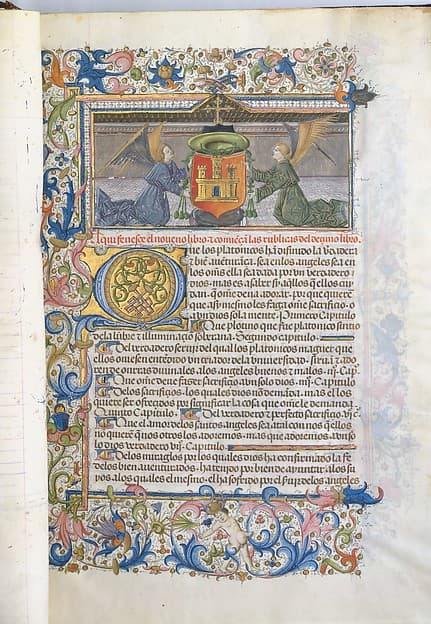 Aqui fenesce el noueno libro & comiença las rublicas del deçimo libro.
Que los platonicos ha disinido la ṽdadera
& biẽ auẽturãça. sea en los angeles sea en
los om̃s ella sea dada por vn verdadero
dios. mas es a saber si aq̃llos que ellos cuy
dan. q̃ om̃e deua adorar. por que quierẽ
que a ellos mesmo les faga om̃e sacrifiçio. o
a vn dios sola mente. Primero Capitulo
Que plotino que fue platonico sintio
de la lunbre & illuminaçiõ soberana. Segundo capitulo.
Del verdadero seruiçio del qual los platonicos maguer que
ellos ouiesen entẽdido vn criador de la
angeles buenos & malos. iij. Cap.º
Que om̃e deue fazer sacrifiçio a vn solo dios. iiij. Capitulo
De los sacrifiçios. los quales dios nõ demãda. mas el los
quiere seer ofreçidos por significar la cosa que om̃e le demanda
Quinto Capitulo. Del verdadero & perfecto sacrifiçio. vjº. cº.
Que el amor de los santos angeles sea atal con nos q̃ ellos
no quierẽ q̃ nos otros los adoremos. mas que adoremos a vn so
lo dios verdadero vij. Capitulo
De los miraglos por los quales dios ha confirmado la fe
de los bien auenturados. ha tenpo por bien de ayuntar. a los su
pos. a los quales el mesmo. el ha
angeles